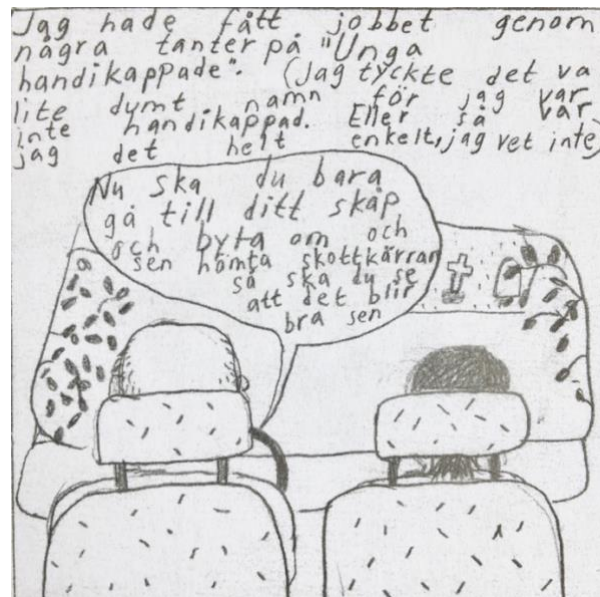 Jag hade fått jobbet genom
några tanter på "Unga
handikappade". (Jag tyckte det va
lite dumt namn för jag var
inte handikappad. Eller så var
jag det helt enkelt, jag vet inte)
Nu ska du bara
gå till ditt skåp
och byta om och
sen hämta skottkärran
så ska du se
att det blir
bra sen